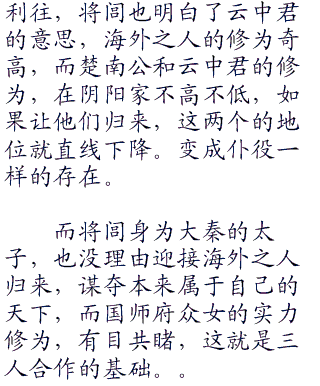 利往，将闾也明白了云中君
的意思，海外之人的修为奇
高，而楚南公和云中君的修
为，在阴阳家不高不低，如
果让他们归来，这两个的地
位就直线下降。变成仆役一
样的存在。
而将闾身为大秦的太
子，也没理由迎接海外之人
归来，谋夺本来属于自己的
天下，而国师府众女的实力
修为，有目共睹，这就是三
人合作的基础。。